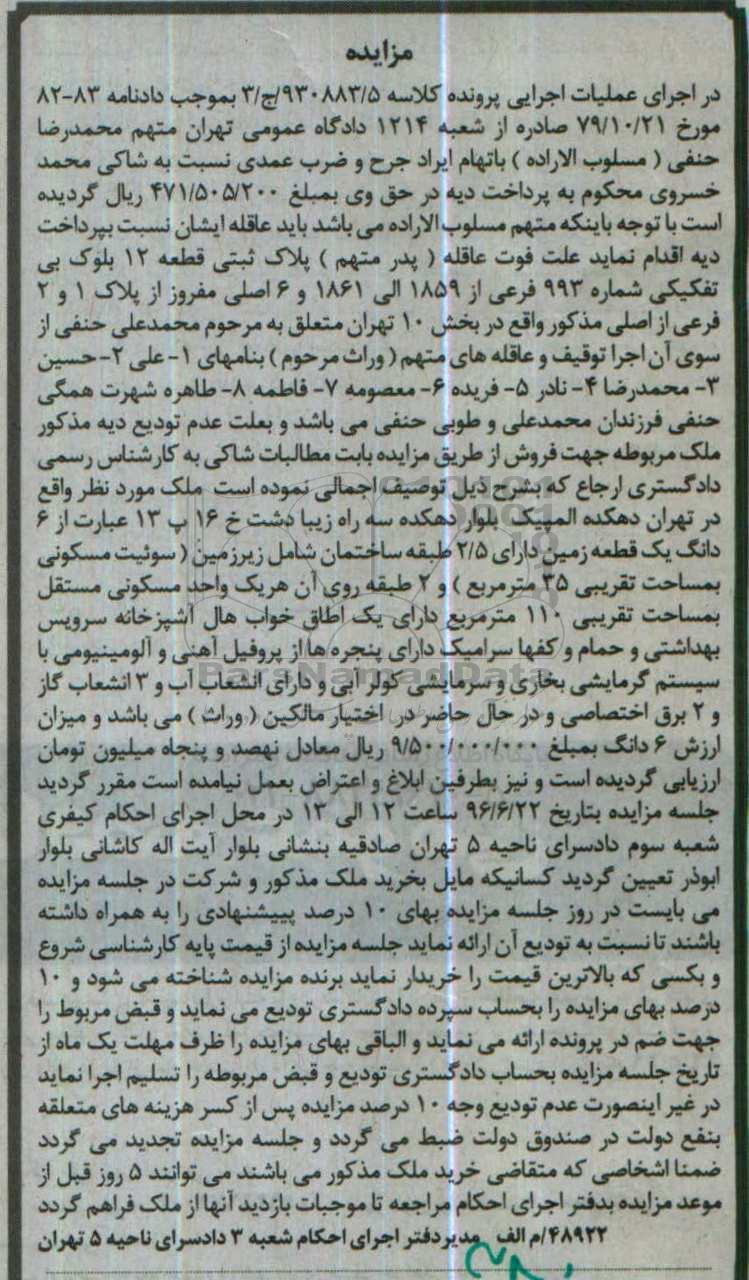 مزایده
در اجرای عملیات اجرایی پرونده کلاسه ۹۳۰۸۸۳/۵/ج/۳ بموجب دادنامه ۸۳-۸۲
مورخ ۷۹/۱۰/۲۱ صادره از شعبه ۱۲۱۴ دادگاه عمومی تهران متهم محمدرضا
حنفی ( مسلوب الاراده ) باتهام ایراد جرح و ضرب عمدی نسبت به شاکی محمد
خسروی محکوم به پرداخت دیه در حق وی بمبلغ ۴۷۱/۵۰۵/۲۰۰ ریال گردیده
است با توجه باینکه متهم مسلوب الاراده می باشد باید عاقله ایشان نسبت بپرداخت
دیه اقدام نماید علت فوت عاقله ( پدر متهم ) پلاک ثبتی قطعه ۱۲ بلوک بی
تفکیکی شماره ۹۹۳ فرعی از ۱۸۵۹ الی ۱۸۶۱ و ۶ اصلی مفروز از پلاک ۱ و ۲
فرعی از اصلی مذکور واقع در بخش ۱۰ تهران متعلق به مرحوم محمدعلی حنفی از
سوی آن اجرا توقیف و عاقله های متهم ( وراث مرحوم ) بنامهای ۱- علی ۲- حسین
۳- محمدرضا ۴- نادر ۵- فریده ۶- معصومه ۷- فاطمه ۸- طاهره شهرت همگی
حنفی فرزندان محمدعلی و طوبی حنفی می باشد و بعلت عدم تودیع دیه مذکور
ملک مربوطه جهت فروش از طریق مزایده بابت مطالبات شاکی به کارشناس رسمی
دادگستری ارجاع که بشرح ذیل توصیف اجمالی نموده است ملک مورد نظر واقع
در تهران دهکده المپیک بلوار دهکده سه راه زیبا دشت خ ۱۶ پ ۱۳ عبارت از ۶
دانگ یک قطعه زمین دارای ۲/۵ طبقه ساختمان شامل زیرزمین ( سوئیت مسکونی
بمساحت تقریبی ۳۵ مترمربع ) و ۲ طبقه روی آن هریک واحد مسکونی مستقل
بمساحت تقریبی ۱۱۰ مترمربع دارای یک اطاق خواب هال آشپزخانه سرویس
بهداشتی و حمام و کفها سرامیک دارای پنجره ها از پروفیل آهنی و آلومینیومی با
سیستم گرمایشی بخاری و سرمایشی کولر آبی و دارای انشعاب آب و ۳ انشعاب گاز
و ۲ برق اختصاصی و در حال حاضر در اختیار مالکین ( وراث ) می باشد و میزان
ارزش ۶ دانگ بمبلغ ۹/۵۰۰/۰۰۰/۰۰۰ ریال معادل نهصد و پنجاه میلیون تومان
ارزیابی گردیده است و نیز بطرفین ابلاغ و اعتراض بعمل نیامده است مقرر گردید
جلسه مزایده بتاریخ ۹۶/۶/۲۲ ساعت ۱۲ الی ۱۳ در محل اجرای احکام کیفری
شعبه سوم دادسرای ناحیه ۵ تهران صادقیه بنشانی بلوار آیت اله کاشانی بلوار
ابوذر تعیین گردید کسانیکه مایل بخرید ملک مذکور و شرکت در جلسه مزایده
می بایست در روز جلسه مزایده بهای ۱۰ درصد پیپشنهادی را به همراه داشته
باشند تا نسبت به تودیع آن ارائه نماید جلسه مزایده از قیمت پایه کارشناسی شروع
و بکسی که بالاترین قیمت را خریدار نماید برنده مزایده شناخته می شود و ۱۰
درصد بهای مزایده را بحساب سپرده دادگستری تودیع می نماید و قبض مربوط را
جهت ضم در پرونده ارائه می نماید و الباقی بهای مزایده را ظرف مهلت یک ماه از
تاریخ جلسه مزایده بحساب دادگستری تودیع و قبض مربوطه را تسلیم اجرا نماید
در غیر اینصورت عدم تودیع وجه ۱۰ درصد مزایده پس از کسر هزینه های متعلقه
بنفع دولت در صندوق دولت ضبط می گردد و جلسه مزایده تجدید می گردد
ضمنا اشخاصی که متقاضی خرید ملک مذکور می باشند می توانند ۵ روز قبل از
موعد مزایده بدفتر اجرای احکام مراجعه تا موجبات بازدید آنها از ملک فراهم گردد
۴۸۹۲۲/م الف مدیردفتر اجرای احکام شعبه ۳ دادسرای ناحیه ۵ تهران
ParsNamadData